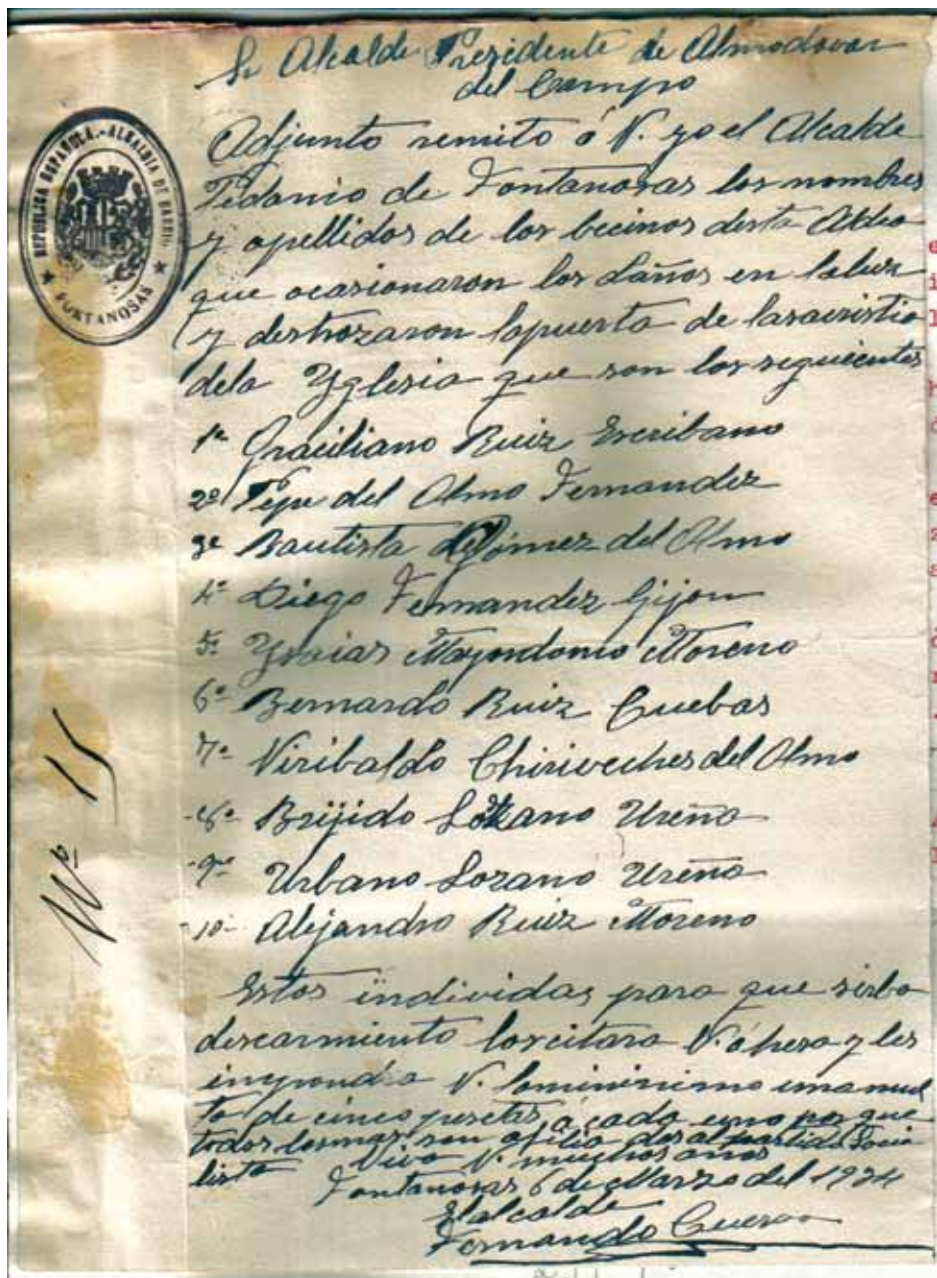 Sr Alcalde Presidente de Almodovar
del Campo
REPUBLICA ESPAÑOLA.-ALCALDIA DE BARRIO
FONTANOSAS
Adjunto remito á V. yo el Alcalde
Pedanio de Fontanosas los nombres
y apellidos de los becinos desta Aldea
que ocasionaron los daños en laluz
y destrozaron lapuerta de lasacristia
dela Yglesia que son los siguientes
1º Graciliano Ruiz Escribano
2º Pepe del Olmo Fernandez
3º Bautista Gómez del Olmo
4º Diego Fernandez Gijon
5º Ysaias Mayordomo Moreno
6º Bernardo Ruiz Cuebas
7º Viribaldo Chirveches del Olmo
8º Brijido Lozano Ureña
9º Urbano Lozano Ureña
10º Alejandro Ruiz Moreno
Nº 15
Estos individuas para que sirba
descarmiento loscitara V. á
V. una mul
ta de cinco pesetas á cada uno porque
todos losmas son afilia dos al partido Socia
lista Viva V. muchos años
Fontanosas 6 de Marzo del 1934
El alcalde
Fernando Cuerva